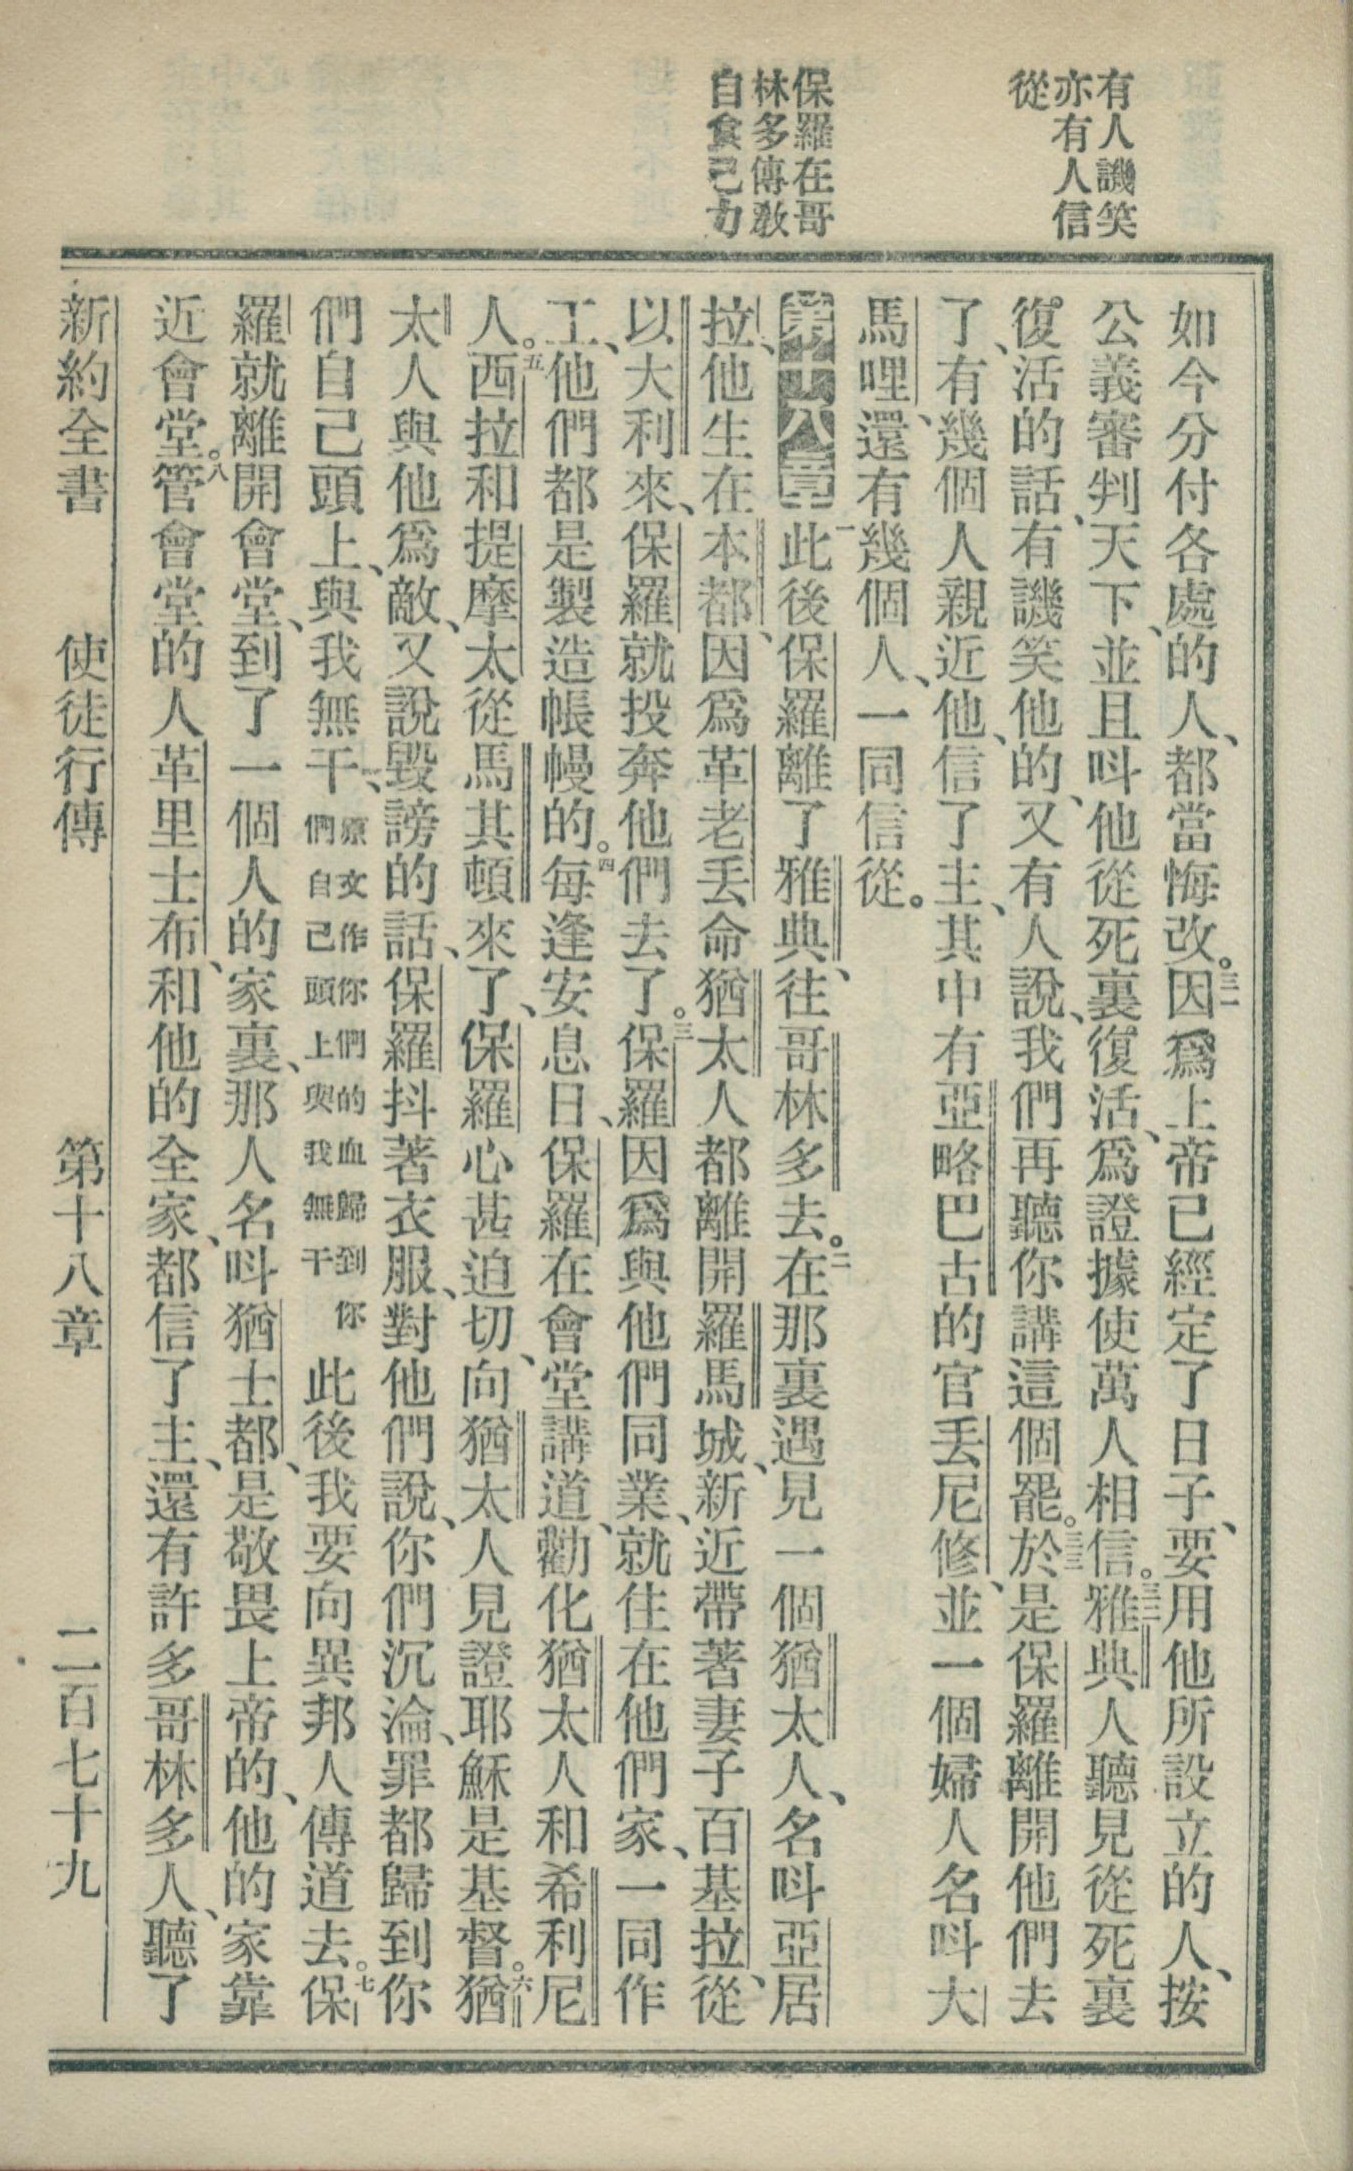 有人譏笑
亦有人信
從
保羅在哥
林多傳敎
自食己力
如今分付各處的人、都當悔改。三一因爲上帝已經定了日子、要用他所設立的人、按
公義審判天下、並且呌他從死裏復活、爲證據使萬人相信。三二雅典人聽見從死裏
復活的話、有譏笑他的、又有人說、我們再聽你講這個罷。三三於是保羅離開他們去
了、有幾個人親近他、信了主、其中有亞略巴古的官丟尼修、並一個婦人名呌大
馬哩、還有幾個人、一同信從。
第十八章 一此後保羅離了雅典、往哥林多去。二在那裏遇見一個猶太人、名呌亞居
拉、他生在本都、因爲革老丟命猶太人都離開羅馬城、新近帶著妻子百基拉、從
以大利來、保羅就投奔他們去了。三保羅因爲與他們同業、就住在他們家、一同作
工、他們都是製造帳幔的。四每逢安息日、保羅在會堂講道、勸化猶太人和希利尼
人。五西拉和提摩太從馬其頓來了、保羅心甚迫切、向猶太人見證耶穌是基督。六猶
太人與他爲敵、又說毀謗的話、保羅抖著衣服、對他們說、你們沉淪、罪都歸到你
們自己頭上、與我無干、原文作你們的血歸到你們自己頭上與我無干 此後我要向異邦人傳道去。七保
羅就離開會堂、到了一個人的家裏、那人名呌猶士都、是敬畏上帝的、他的家靠
近會堂。八管會堂的人革里士布、和他的全家、都信了主、還有許多哥林多人、聽了
新約全書 使徒行傳 第十八章 二百七十九